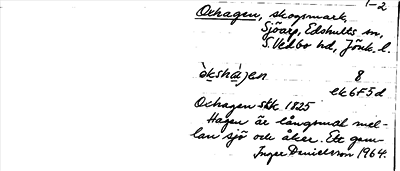 1-2
Oxhagen, skogsmark,
Sjöarp, Edshults sn,
S. Vedbo hd, Jönk. l.
òkshájen 8
ek6F5d
Oxhagen shk 1825
Hagen är långsmal mel-
lan sjö och åker. Ett gam-
Inger Danielsson 1964.